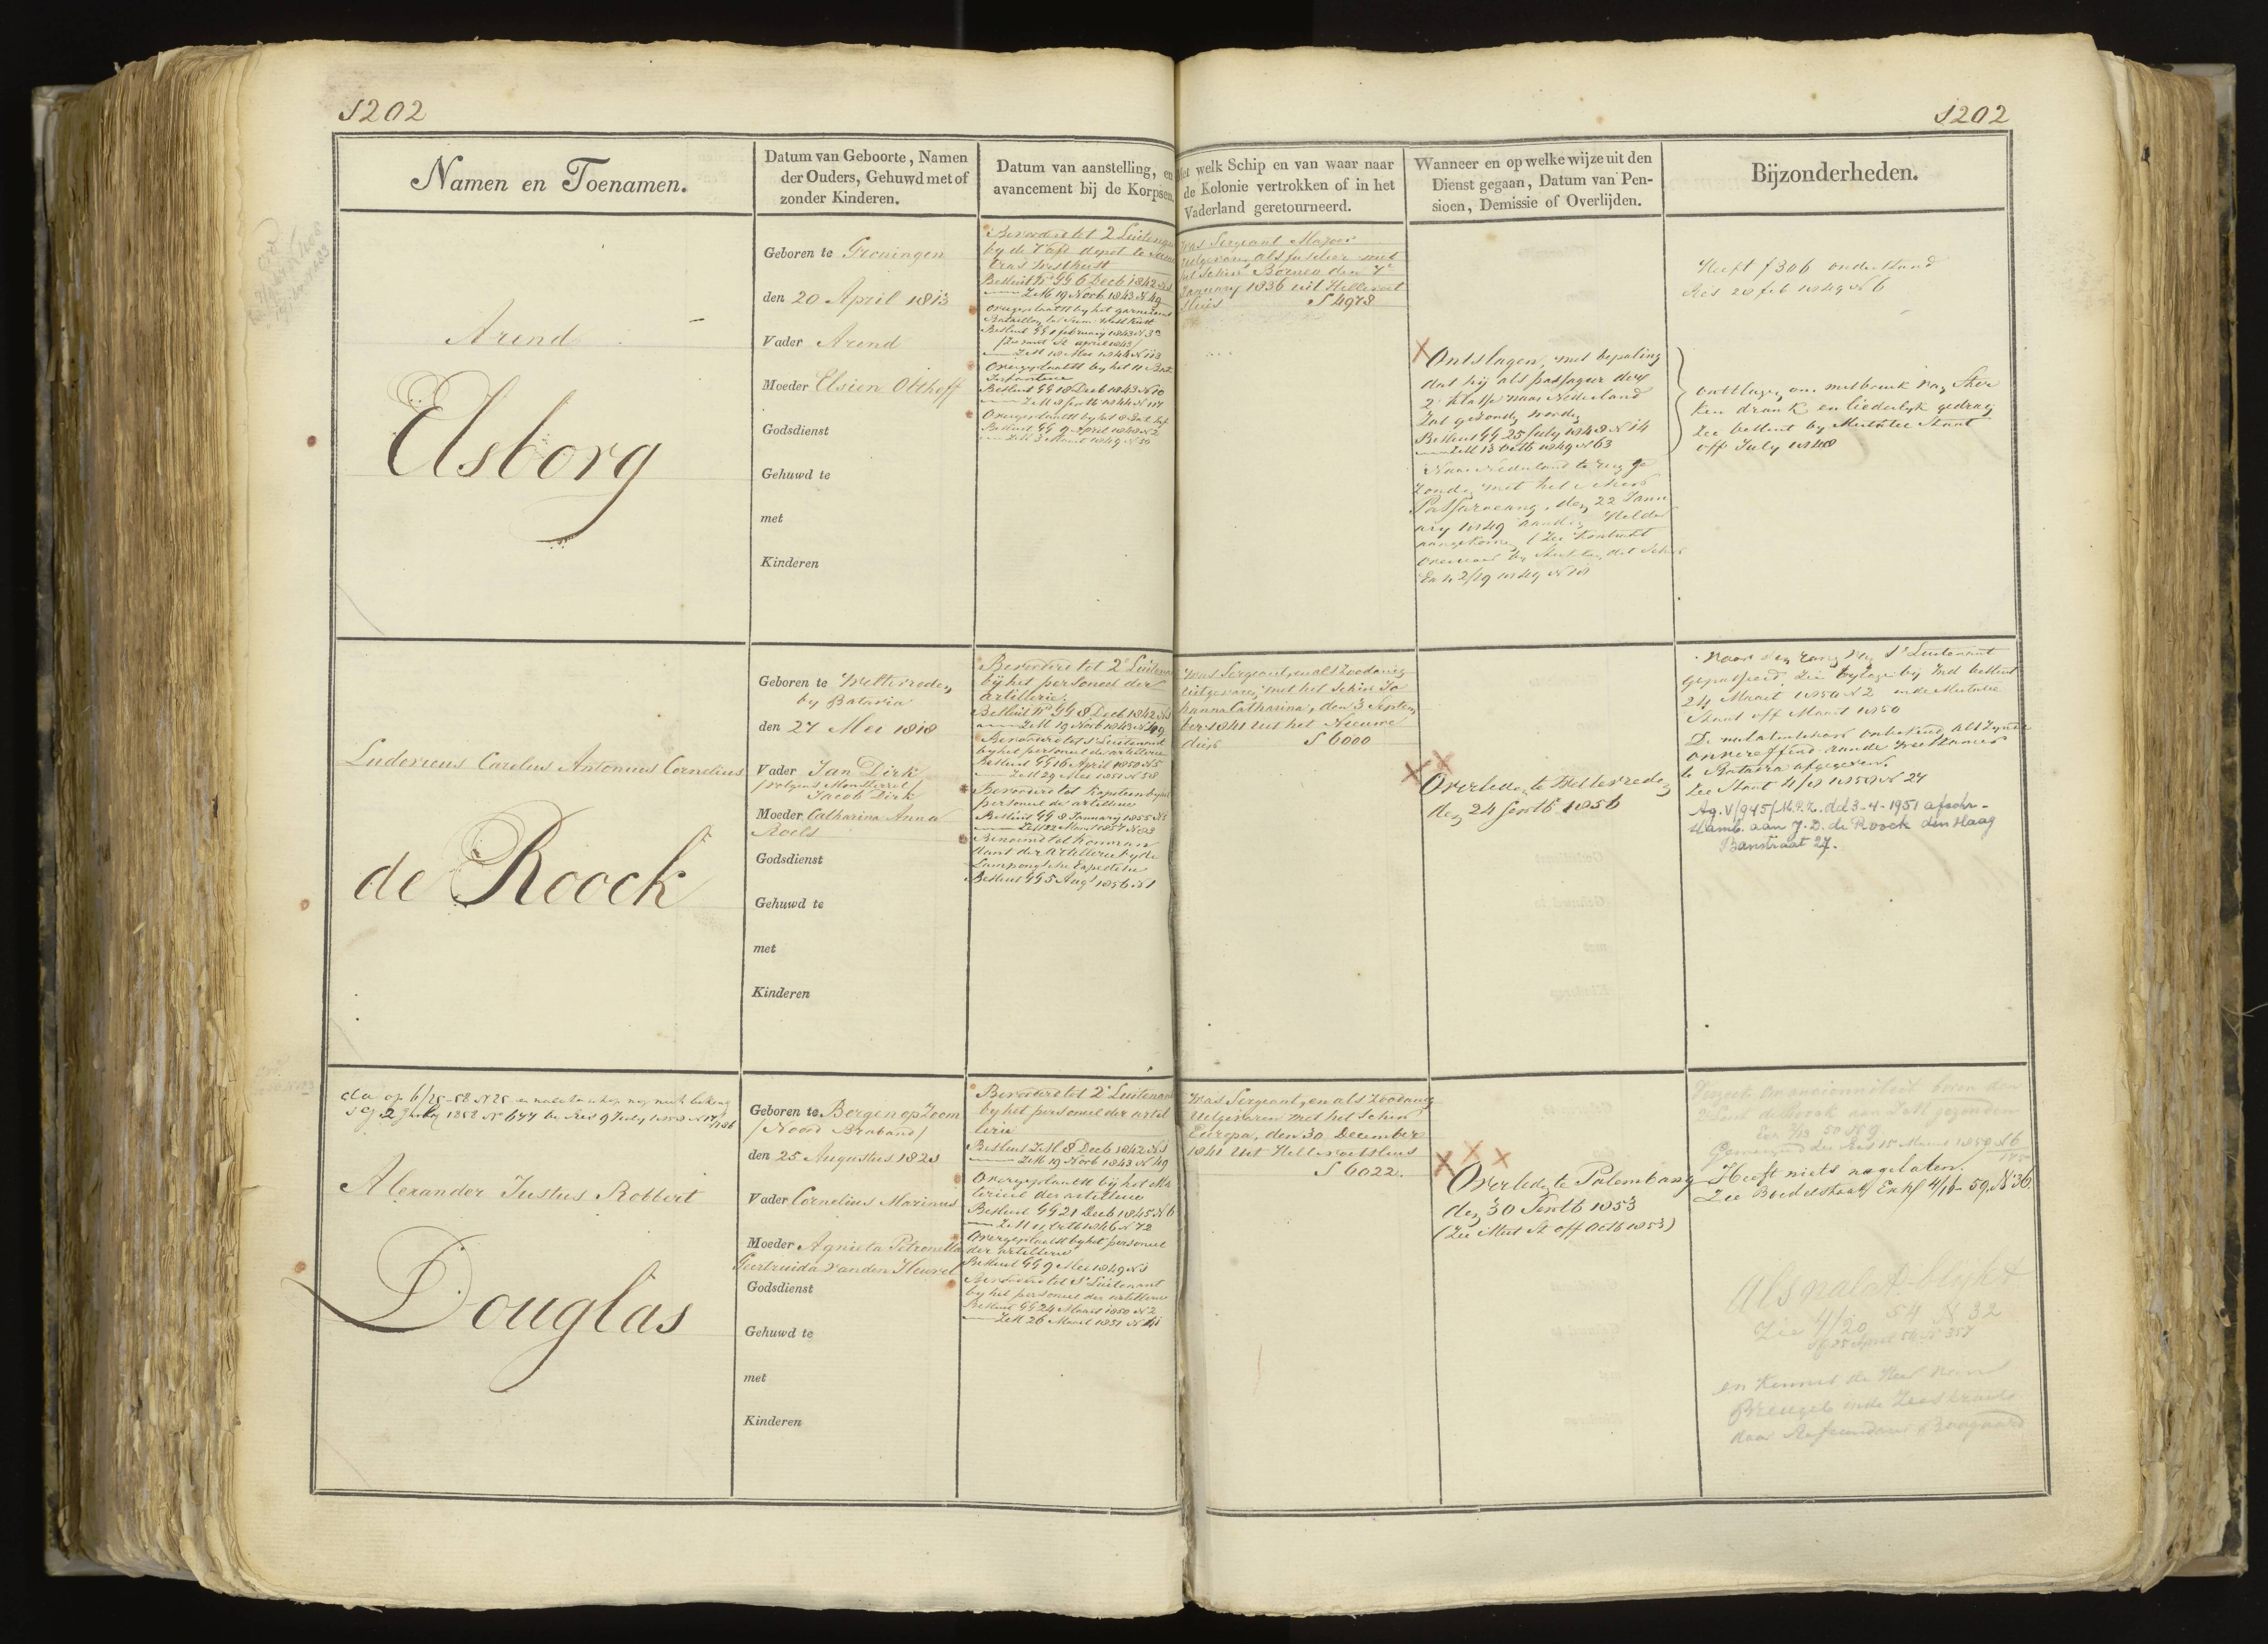 1202
1202
Namen en Toenamen.
Datum van Geboorte, Namen
der Ouders, Gehuwd met of
zonder Kinderen.
Datum van aanstelling, en
avancement bij de Korpsen.
Met welk Schip en van waar naar
de Kolonie vertrokken of in het
Vaderland geretourneerd.
Wanneer en op welke wijze uit den
Dienst gegaan, Datum van Pen-
sioen, Demissie of Overlijden.
Bijzonderheden.
Arend
Elsborg
Geboren te Groningen
den 20 April 1813
Vader Arend
Moeder Elsien Olthoff
Godsdienst
Gehuwd te
met
Kinderen
Bevorderd tot 2e Luitenant
by de Vaste depot te
tras Westkust
Besluit GG 6 Decb 1842 N1
ZeM 19 Novb 1843 N 49
overgeplaatst by het garnizoens
Bataillon
Besluit GG february 1843 N 3
ZeM 18 Mei 1844 N 113
Overgeplaatst by het 11 Bat
Infanterie
Besluit GG 18 Decb 1843 N 10
Overgeplaatst by het 8 Bat Inf
Besluit GG 9 April 1848 N 2
ZeM 3 Maart 1849 N 59
was Sergeant Majoor
uitgevaren als fuselier met
het schip Borneo den 7e
January 1836 uit Hellevoet
sluis S 4978
Ontslagen, met bepaling
dat hij als passagier der
2e Klasse naar Nederland
zal gezonden worden
Besluit GG 25 July 1848 N 14
ZeM 13 Octb 1849 N 63
Naar Nederland terug ge
zonden met het schip
den 22 Janu
ary 1849 aan den Helder
aangekomen (Zie Kontrakt
Exh 2/19 1849 N 18
Heeft f 306 onderstand
Res 28 feb 1849 N 6
ontslagen om misbruik van Ster
ken drank en liederlyk gedrag
Zie besluit by Mutatie Staat
off July 1848
Ludovicus Carolus Antonius Cornelius
de Roock
Geboren te Weltevreden
by Batavia
den 27 Mei 1818
Vader Jan Dirk
/volgens Monsterrol/
Jacob Dirk
Moeder Catharina Anna
Roels
Godsdienst
Gehuwd te
met
Kinderen
Bevorderd tot 2e Luitenant
bij het personeel der
artillerie
Besluit GG 8 Decb 1842 N1
ZeM 19 Novb 1843 N 49
Bevorderd tot 1e Luitenant
by het personeel der artillerie
Besluit GG 16 April 1850 N5
ZeM 29 Mei 1851 N 58
Bevorderd tot Kapitein by het
personeel der artillerie
Besluit GG 8 January 1855 N1
ZeM 22 Maart 1857 N 83
Benoemd tot Komman
dant der Artillerie by de
Lampongsche Expeditie
Besluit GG 5 Augt 1856 N1
was Sergeant, en als zoodanig
uitgevaren, met het Schip Jo
hanna Catharina, den 3 Septem
ber 1841 uit het Nieuwe
diep S 6000
Overleden te Weltevreden
den 24 Septb 1856
Voor den rang van 1e Luitenant
gepasseerd. Zie bylage bij Ind besluit
24 Maart 1850 N 2 en de Mutatie
Staat off Maart 1850
De nalatenschap onbekend, als zynde
aan de Weeskamer
te Batavia afgegeven.
Zie Staat 4/18 1859 N 27
Ag. V/945/M.P.Z. dd 3-4-1951 afschr.
stamb. aan J.D. de Roock den Haag
Banstraat 27.
Alexander Justus Robbert
Douglas
Geboren te Bergen op Zoom
/Noord Braband/
den 25 Augustus 1823
Vader Cornelius Marinus
Moeder Agnieta Petronella
Geertruida van den Heuvel
Godsdienst
Gehuwd te
met
Kinderen
Bevorderd tot 2e Luitenant
by het personeel der artil
lerie
Besluit ZeM 8 Decb 1842 N1
ZeM 19 Novb 1843 N 49
Overgeplaatst bij het Ma
terieel der artillerie
Besluit GG 21 Decb 1845 N 6
ZeM 11 Octb 1846 N 72
Overgeplaatst by het personeel
der artillerie
Besluit GG 9 Mei 1849 N 1
Bevorderd tot 1e Luitenant
by het personeel der artillerie
Besluit GG 24 Maart 1850 N 2
ZeM 26 Maart 1851 N 41
Was Sergeant, en als zoodanig
uitgevaren met het Schip
Europa, den 30 December
1841 uit Hellevoetsluis
S 6022.
Overleden te Palembang
den 30 Septb 1853
(Zie Mut St off Octb 1853)
Heeft niets nagelaten.
Zie Boedelstaat Exh 4/18-59 N 36.
Zie 4/20 54 N 32